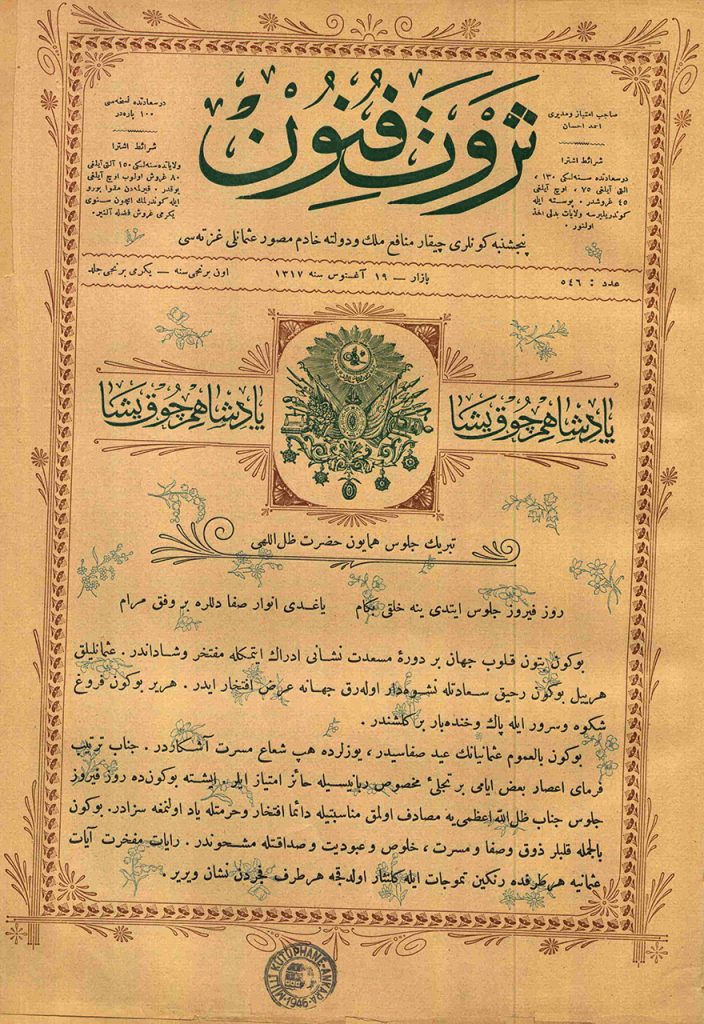 ثروت فنون
صاحب امتیاز و مدیری
احمد احسان
شرائط اشترا
درسعادتده سنه‌لكی ۱۳۰
التی آیلغی ۷۵ ، اوچ آیلغی
۴۵ غروشدر . پوسته ایله
كوندریلیرسه ولایات بدلی اخذ
اولنور .
درسعادتده نسخه‌سی
۱۰۰ پاره‌در
شرائط اشترا
ولایاتده سنه‌لكی ۱۵۰ آلتی آیلغی
۸۰ غروش اولوب اوچ آیلغی
یوقدر . قیرلمه‌دن مقوا بورو
ایله كوندرلمك ایچون سنوی
یكرمی غروش فضله آلنیر .
پنجشنبه كونلری چیقار منافع ملك و دولته خادم مصور عثمانلی غزته‌سی
عدد : ۵٤٦
بازار — ۱۹ آغستوس سنه ۱۳۱۷
اون برنجی سنه — یكرمی برنجی جلد
پادشاهم چوق یشا
پادشاهم چوق یشا
تبریك جلوس همایون حضرت ظل اللهی
روز فیروز جلوس ایتدی ینه خلقی بكام   یاغدی انوار صفا دللره بر وفق مرام
بوكون بتون قلوب جهان بر دورهٔ مسعدت نشانی ادراك ایتمكله مفتخر و شاداندر . عثمانلیلق
هرییل بوكون رحیق سعادتله نشوه‌دار اوله‌رق جهانه عرض افتخار ایدر . هریر بوكون فروغ
شكوه و سرور ایله پاك و خنده‌بار بر كلشندر .
بوكون بالعموم عثمانیانك عید صفاسیدر ، یوزلرده هپ شعاع مسرت آشكاردر . جناب ترتیب
فرمای اعصار بعض ایامی بر تجلیٔ مخصوص ربانیسیله حائز امتیاز ایلر . ایشته بوكون‌ده روز فیروز
جلوس جناب ظل‌الله اعظمی‌یه مصادف اولمق مناسبتیله دائما افتخار و حرمتله یاد اولنمغه سزادر . بوكون
بالجمله قلبلر ذوق و صفا و مسرت ، خلوص و عبودیت و صداقتله مشحوندر . رایات مفخرت آیات
عثمانیه هر طرفده رنكین تموجات ایله كلنثار اولدقجه هر طرف فجردن نشان ویریر .
MİLLİ KÜTÜPHANE-ANKARA
1946